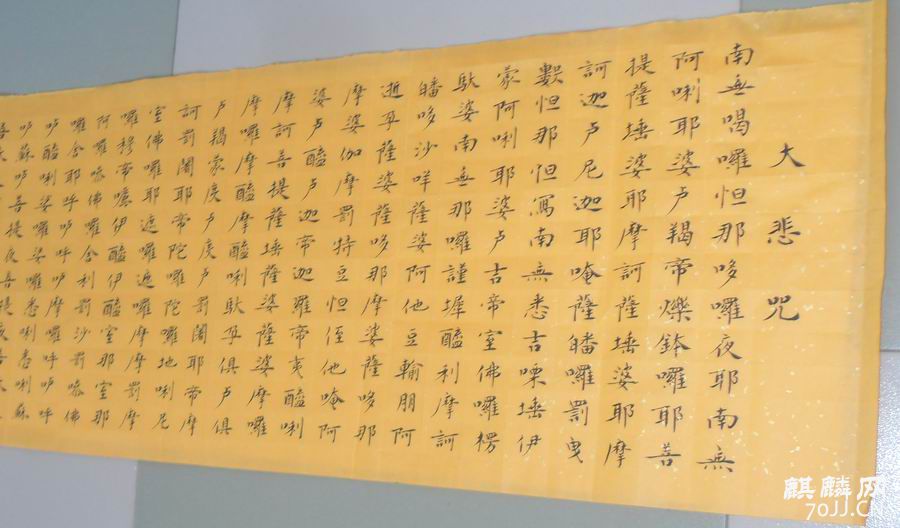 大悲咒
南無喝囉怛那哆囉夜耶南無
阿唎耶婆卢羯帝爍鉢囉耶菩
提薩埵婆耶摩訶薩埵婆耶摩
訶迦卢尼迦耶唵薩皤囉罰曳
數怛那怛寫南無悉吉嘌埵伊
蒙阿唎耶婆卢吉帝室佛囉楞
馱婆南無那囉謹墀醯利摩訶
皤哆沙咩薩婆阿他豆輸朋阿
逝孕薩婆薩哆那摩婆薩哆那
摩婆伽摩罰特豆怛侄他唵阿
婆卢醯卢迦帝迦羅帝夷醯唎
摩訶菩提薩埵薩婆薩婆摩囉
摩囉摩醯摩醯唎馱孕俱卢俱
卢羯蒙度卢度卢罰闍耶帝摩
訶罰闍耶帝陀囉陀囉地唎尼
室佛囉耶遮囉遮囉摩摩罰摩
囉穆帝囇伊醯伊醯室那室那
阿囉嘇佛囉舍利罰沙罰嘇佛
囉舍耶呼嚧呼嚧摩囉呼嚧呼
嚧醯唎娑囉娑囉悉唎悉唎蘇
麒麟网
70JJ.CN